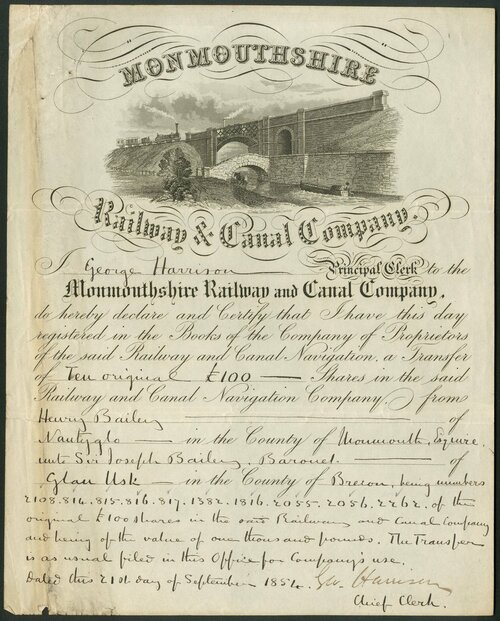 MONMOUTHSHIRE
Railway & Canal Company.
I George Harrison Principal Clerk to the
Monmouthshire Railway and Canal Company,
do hereby declare and Certify that I have this day
registered in the Books of the Company of Proprietors
of the said Railway and Canal Navigation, a Transfer
of Ten original £100 — Shares in the said
Railway and Canal Navigation Company, from
Henry Bailey of
Nantyglo — in the County of Monmouth, Esquire
unto Sir Joseph Bailey, Baronet of
Glan Usk — in the County of Brecon, being numbers
2108. 814. 815. 816. 817. 1382. 1816. 2055. 2056. 2262. of the
original £100 shares in the said Railway and Canal Company
and being of the value of one thousand pounds. The Transfer
is as usual filed in this Office for Company's use.
Dated this 21st day of September 1854. Geo. Harrison
Chief Clerk.